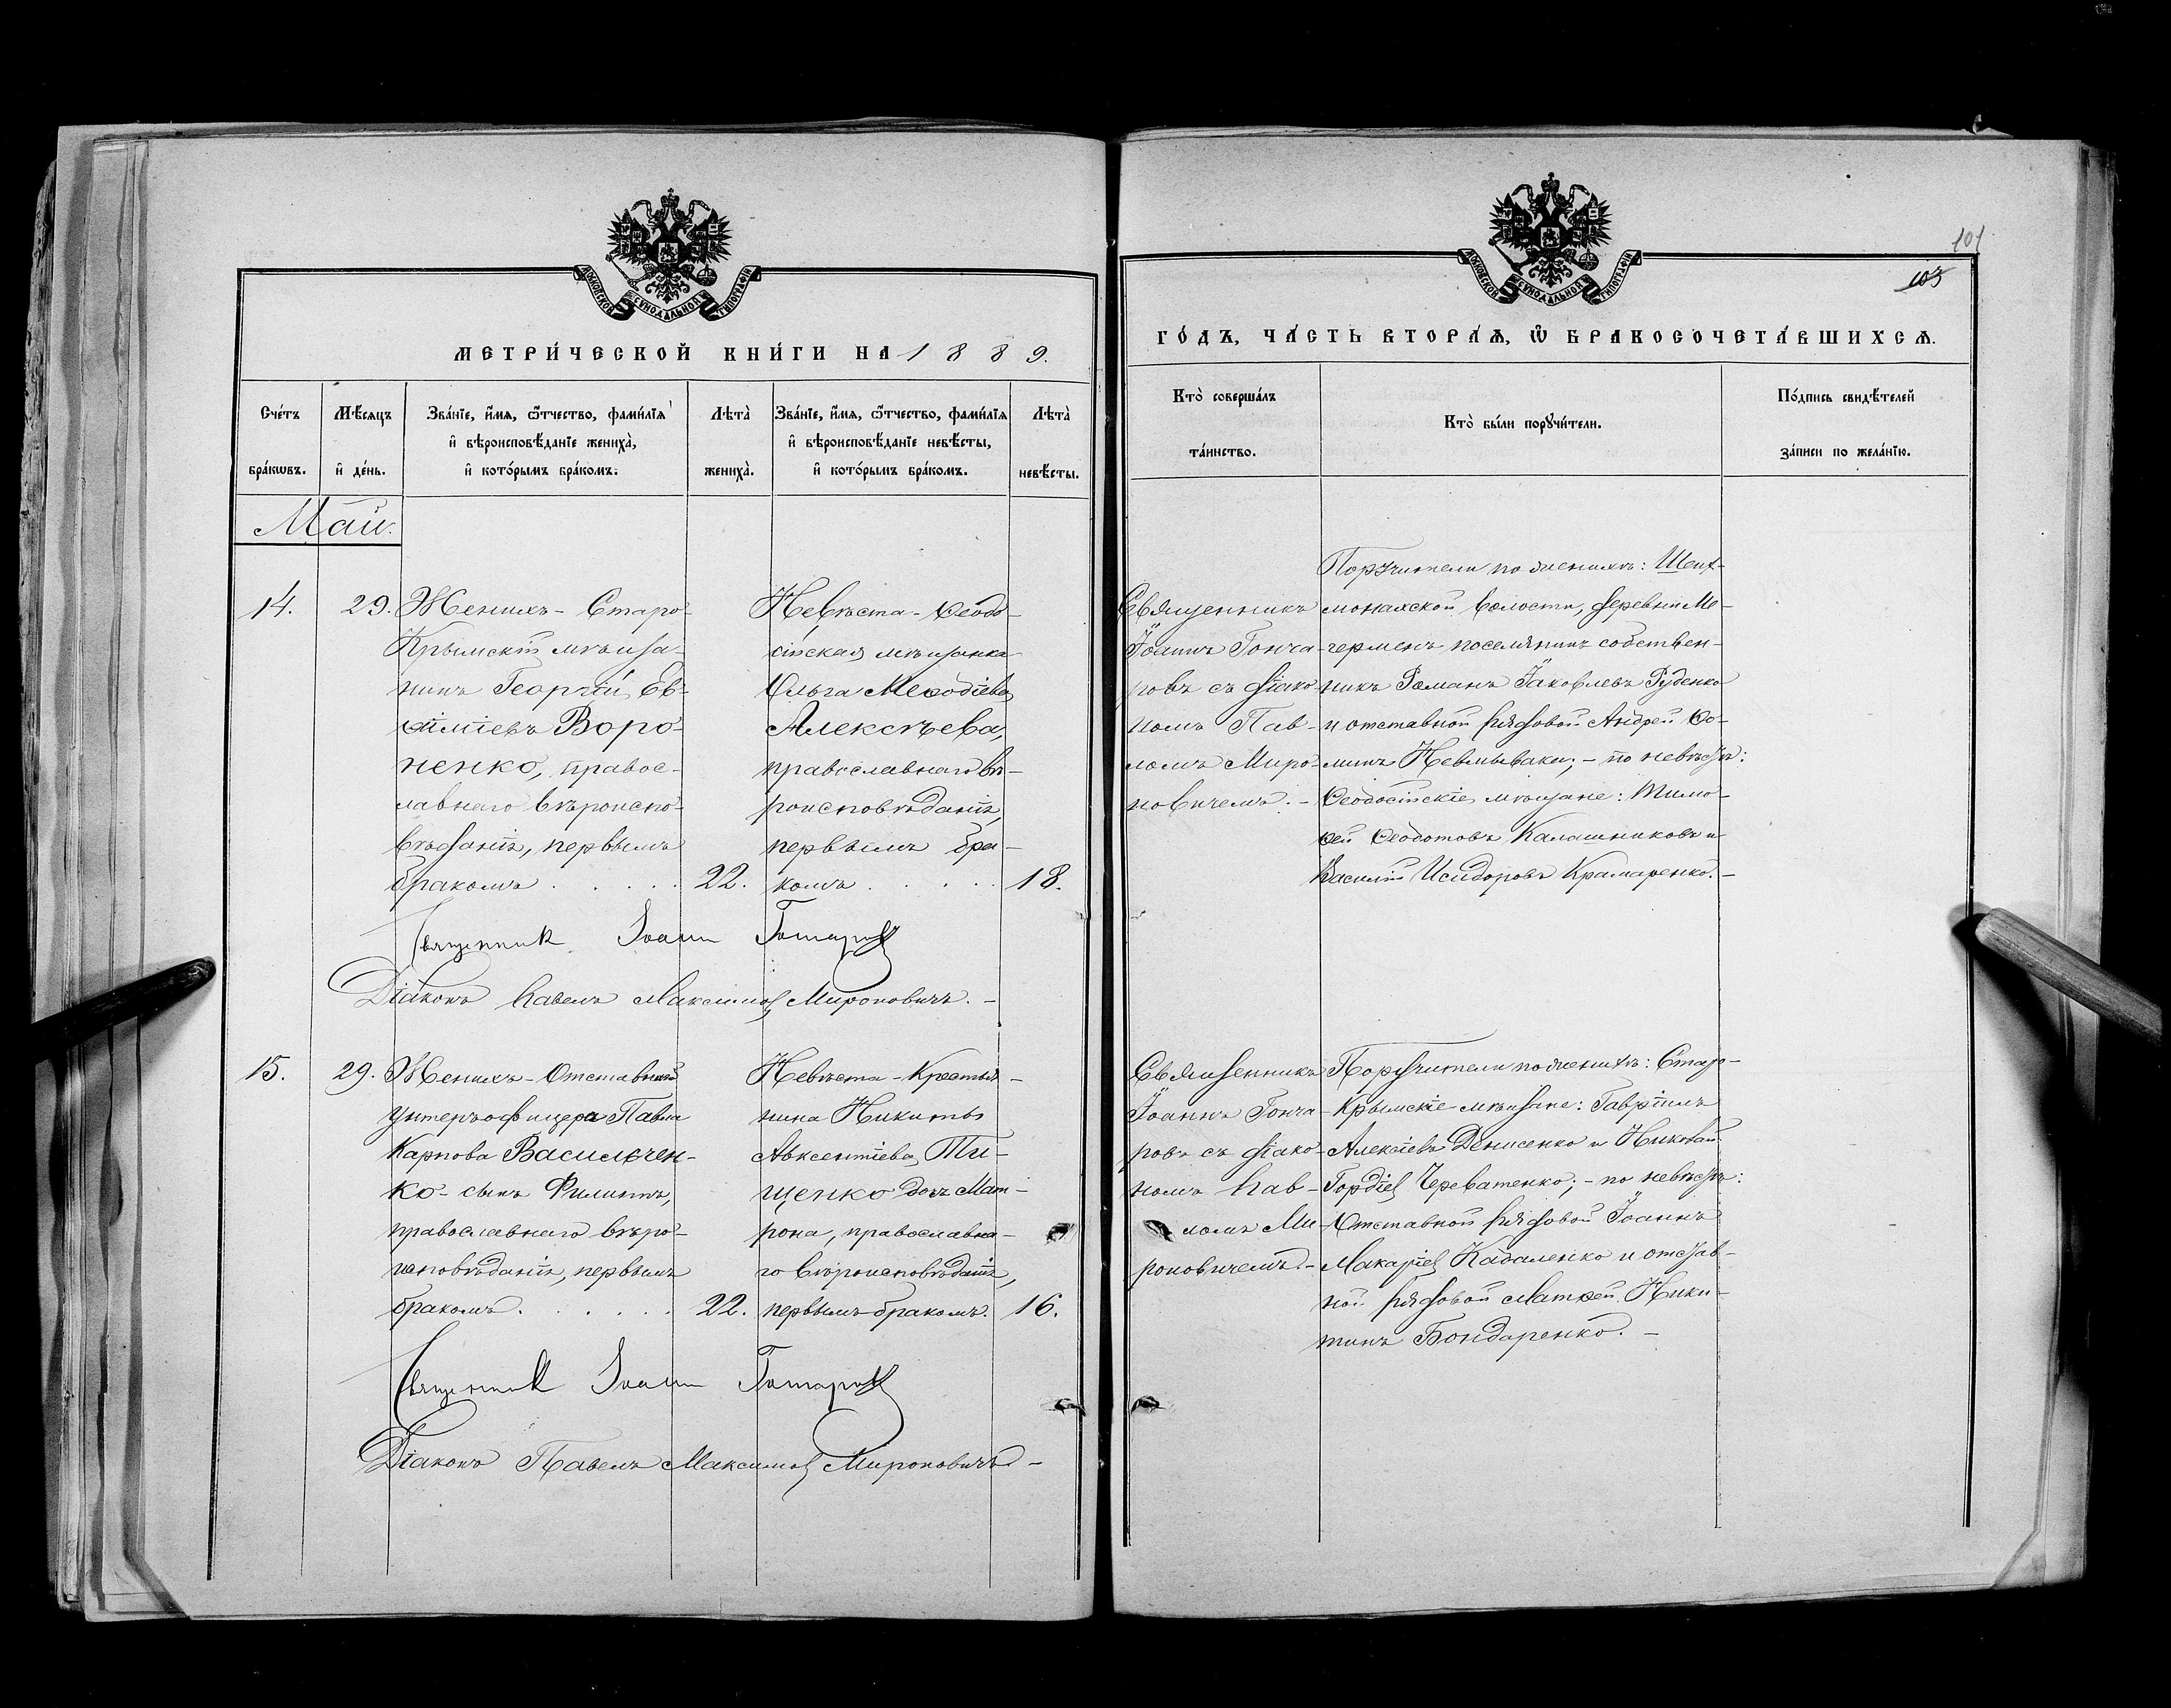 МОСКОВСКОЙ СѴНОДАЛЬНОЙ ТИПОГРАФІИ
МЕТРИ́ЧЕСКОЙ КНИ́ГИ НА 1889.
Сче́тъ бра́кѡвъ.
Мѣ́сяцъ и҆ де́нь.
Зва́нїе, и҆́мя, ѻ҆́тчество, фами́лїя
и҆ вѣроисповѣ́данїе жениха̀,
и҆ кото́рымъ бра́комъ.
Лѣта̀ жениха̀.
Зва́нїе, и҆́мя, ѻ҆́тчество, фами́лїя
и҆ вѣроисповѣ́данїе невѣ́сты,
и҆ кото́рымъ бра́комъ.
Лѣта̀ невѣ́сты.
Май.
14.
29.
Женихъ - Старо-
Крымскій мѣща-
нинъ Георгій Ев-
ѳиміевъ Воро-
ненко, правос-
лавнаго вѣроиспо-
вѣданія, первымъ
бракомъ . . . . .
22.
Невѣста - Ѳеодо-
сійская мѣщанка
Ольга Меѳодіева
Алексѣева,
православнаго вѣ-
роисповѣданія,
первымъ бра-
комъ . . . . .
18.
Священник Іоанн Гончаровъ
Діаконъ Павелъ Максимовъ Мироновичъ. -
15.
29.
Женихъ - Отставнаго
унтеръ-офицера Павла
Карпова Васильчен-
ко - сынъ Филиппъ,
православнаго вѣро-
исповѣданія, первымъ
бракомъ. . . . . .
22.
Невѣста - Крестья-
нина Никиты
Авксентіева Ти-
щенко дочь Мат-
рона, православна-
го вѣроисповѣданія,
первымъ бракомъ.
16.
Священник Іоанн Гончаровъ
Діаконъ Павелъ Максимовъ Мироновичъ -
101
103
МОСКОВСКОЙ СѴНОДАЛЬНОЙ ТИПОГРАФІИ
ГО́ДЪ, ЧА́СТЬ ВТОРА́Ѧ, Ѽ БРАКОСОЧЕТА́ВШИХСѦ.
Кто̀ соверша́лъ та́инство.
Кто̀ бы́ли порꙋчи́тели.
По́дпись свидѣ́телей за́писи по жела́нїю.
Священникъ
Іоаннъ Гонча-
ровъ съ діако-
номъ Пав-
ломъ Миро-
новичемъ. -
Поручители по женихѣ: Шейх-
монахской волости, деревни Ме-
черменъ поселянинъ собствен-
никъ Романъ Іаковлевъ Руденко
и отставной рядовой Андрей Ѳо-
минъ Невмываки; - по невѣстѣ:
Ѳеодосійскіе мѣщане: Тимо-
ѳей Ѳеодотовъ Калашниковъ и
Василій Исидоровъ Крамаренко. -
Священникъ
Іоаннъ Гонча-
ровъ съ діако-
номъ Пав-
ломъ Ми-
роновичемъ. -
Поручители по женихѣ: Старо-
Крымскіе мѣщане: Гавріилъ
Алексіевъ Денисенко и Николай
Гордіевъ Череватенко; - по невѣстѣ:
Отставной рядовой Іоаннъ
Макаріевъ Кадаленко и отстав-
ной рядовой Матѳей Ники-
тинъ Бондаренко. -